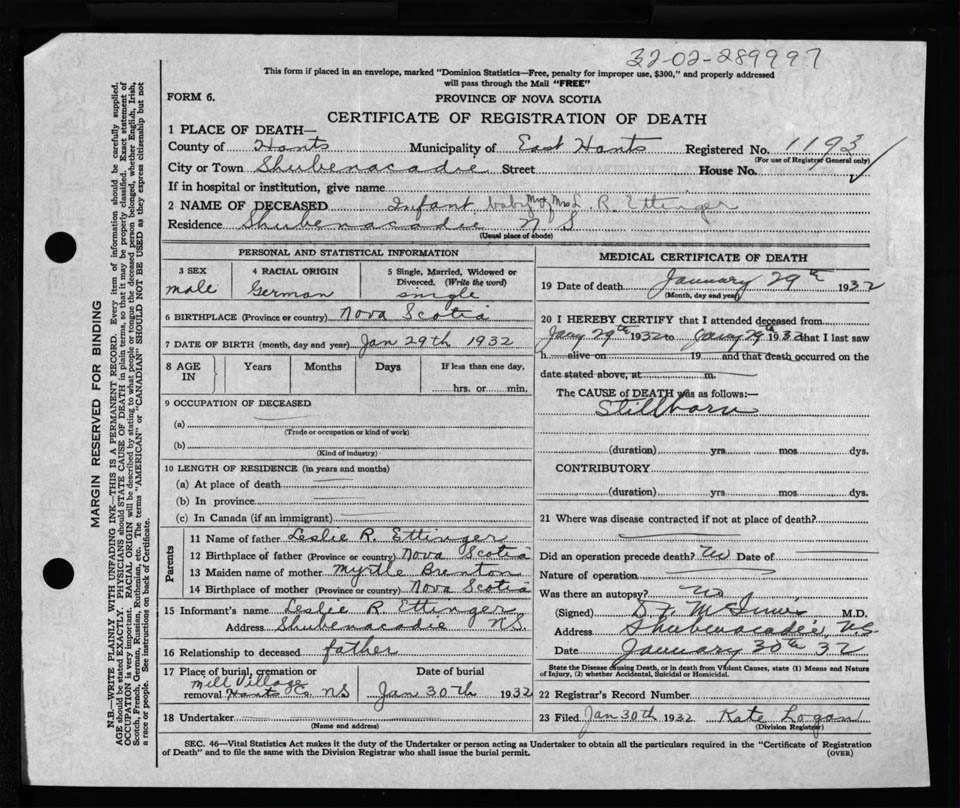 32-02-289997
This form if placed in an envelope, marked "Dominion Statistics—Free, penalty for improper use, $300," and properly addressed
will pass through the Mail "FREE"
FORM 6.
PROVINCE OF NOVA SCOTIA
CERTIFICATE OF REGISTRATION OF DEATH
1 PLACE OF DEATH—
County of Hants Municipality of East Hants Registered No. 1193
(For use of Registrar General only)
City or Town Shubenacadie Street House No.
If in hospital or institution, give name
2 NAME OF DECEASED Infant baby Mr & Mrs L. R. Ettinger
Residence Shubenacadie N S
(Usual place of abode)
PERSONAL AND STATISTICAL INFORMATION
3 SEX 4 RACIAL ORIGIN 5 Single, Married, Widowed or
Divorced. (Write the word)
male German single
6 BIRTHPLACE (Province or country) Nova Scotia
7 DATE OF BIRTH (month, day and year) Jan 29th 1932
8 AGE IN Years Months Days If less than one day,
hrs. or min.
9 OCCUPATION OF DECEASED
(a)
(Trade or occupation or kind of work)
(b)
(Kind of industry)
10 LENGTH OF RESIDENCE (in years and months)
(a) At place of death
(b) In province
(c) In Canada (if an immigrant)
Parents
11 Name of father Leslie R. Ettinger
12 Birthplace of father (Province or country) Nova Scotia
13 Maiden name of mother Myrtle Brenton
14 Birthplace of mother (Province or country) Nova Scotia
15 Informant's name Leslie R Ettinger
Address Shubenacadie N.S.
16 Relationship to deceased father
17 Place of burial, cremation or Date of burial
Mill Village
removal Hants Co. NS Jan 30th 1932
18 Undertaker
(Name and address)
MEDICAL CERTIFICATE OF DEATH
19 Date of death January 29th 1932
(Month, day and year)
20 I HEREBY CERTIFY that I attended deceased from
Jany 29th 1932 to Jany 29th 1932 that I last saw
h alive on 19 and that death occurred on the
date stated above, at m.
The CAUSE OF DEATH was as follows:
Stillborn
(duration) yrs mos dys.
CONTRIBUTORY
(duration) yrs mos dys.
21 Where was disease contracted if not at place of death?
Did an operation precede death? No Date of
Nature of operation
Was there an autopsy? No
(Signed) M.D.
Address Shubenacadie, N.S.
Date January 30th 32
State the Disease causing Death, or in death from Violent Causes, state (1) Means and Nature
of Injury, (2) whether Accidental, Suicidal or Homicidal.
22 Registrar's Record Number
23 Filed Jan 30th 1932 Kate Logan
(Division Registrar)
SEC. 46—Vital Statistics Act makes it the duty of the Undertaker or person acting as Undertaker to obtain all the particulars required in the "Certificate of Registration
of Death" and to file the same with the Division Registrar who shall issue the burial permit.
(OVER)
MARGIN RESERVED FOR BINDING
N.B.—WRITE PLAINLY WITH UNFADING INK—THIS IS A PERMANENT RECORD. Every item of information should be carefully supplied.
AGE should be stated EXACTLY. PHYSICIANS should STATE CAUSE OF DEATH in plain terms, so that it may be properly classified. Exact statement of
OCCUPATION is very important. RACIAL ORIGIN will be described by stating to what people or tongue the deceased person belonged, whether English, Irish,
Scotch, French, German, Russian, Ruthenian, etc. The terms "AMERICAN" or "CANADIAN" SHOULD NOT BE USED as they express citizenship but not
a race or people. See instructions on back of Certificate.